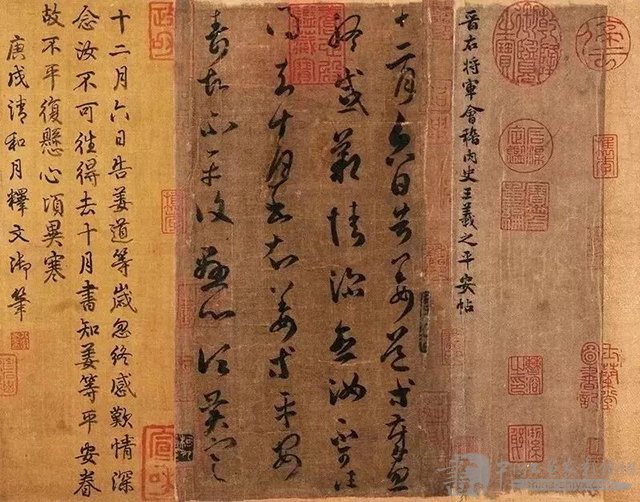 晉右將軍會稽內史王羲之平安帖
十二月六日告姜道等歲忽
終感歎情深念汝不可徃
得去十月書知姜等平安
眷故不平復懸心頃異寒
政和
宣和
十二月六日告姜道等歲忽終感歎情深
念汝不可徃得去十月書知姜等平安眷
故不平復懸心頃異寒
庚戌清和月釋文御筆